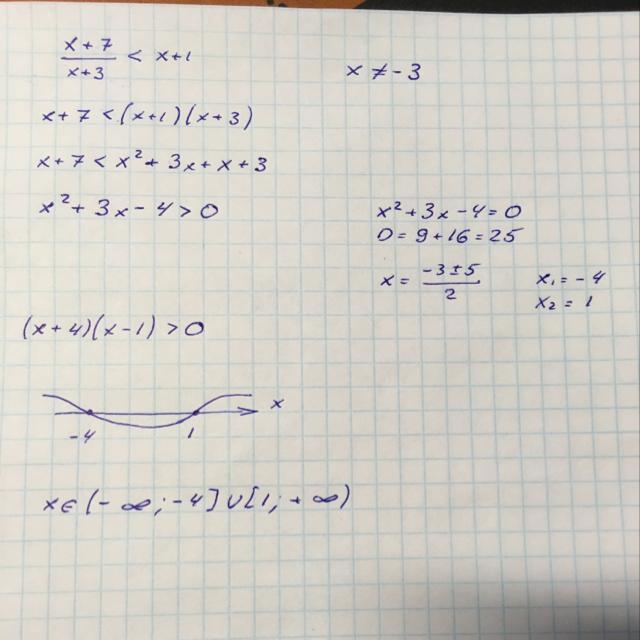 x+7/x+3 < x+1
x ≠ -3
x+7 < (x+1)(x+3)
x+7 < x²+3x+x+3
x²+3x-4>0
x²+3x-4=0
D=9+16=25
x = -3±5/2
x₁=-4
x₂=1
(x+4)(x-1)>0
x
-4 1
x∈(-∞;-4]∪[1;+∞)